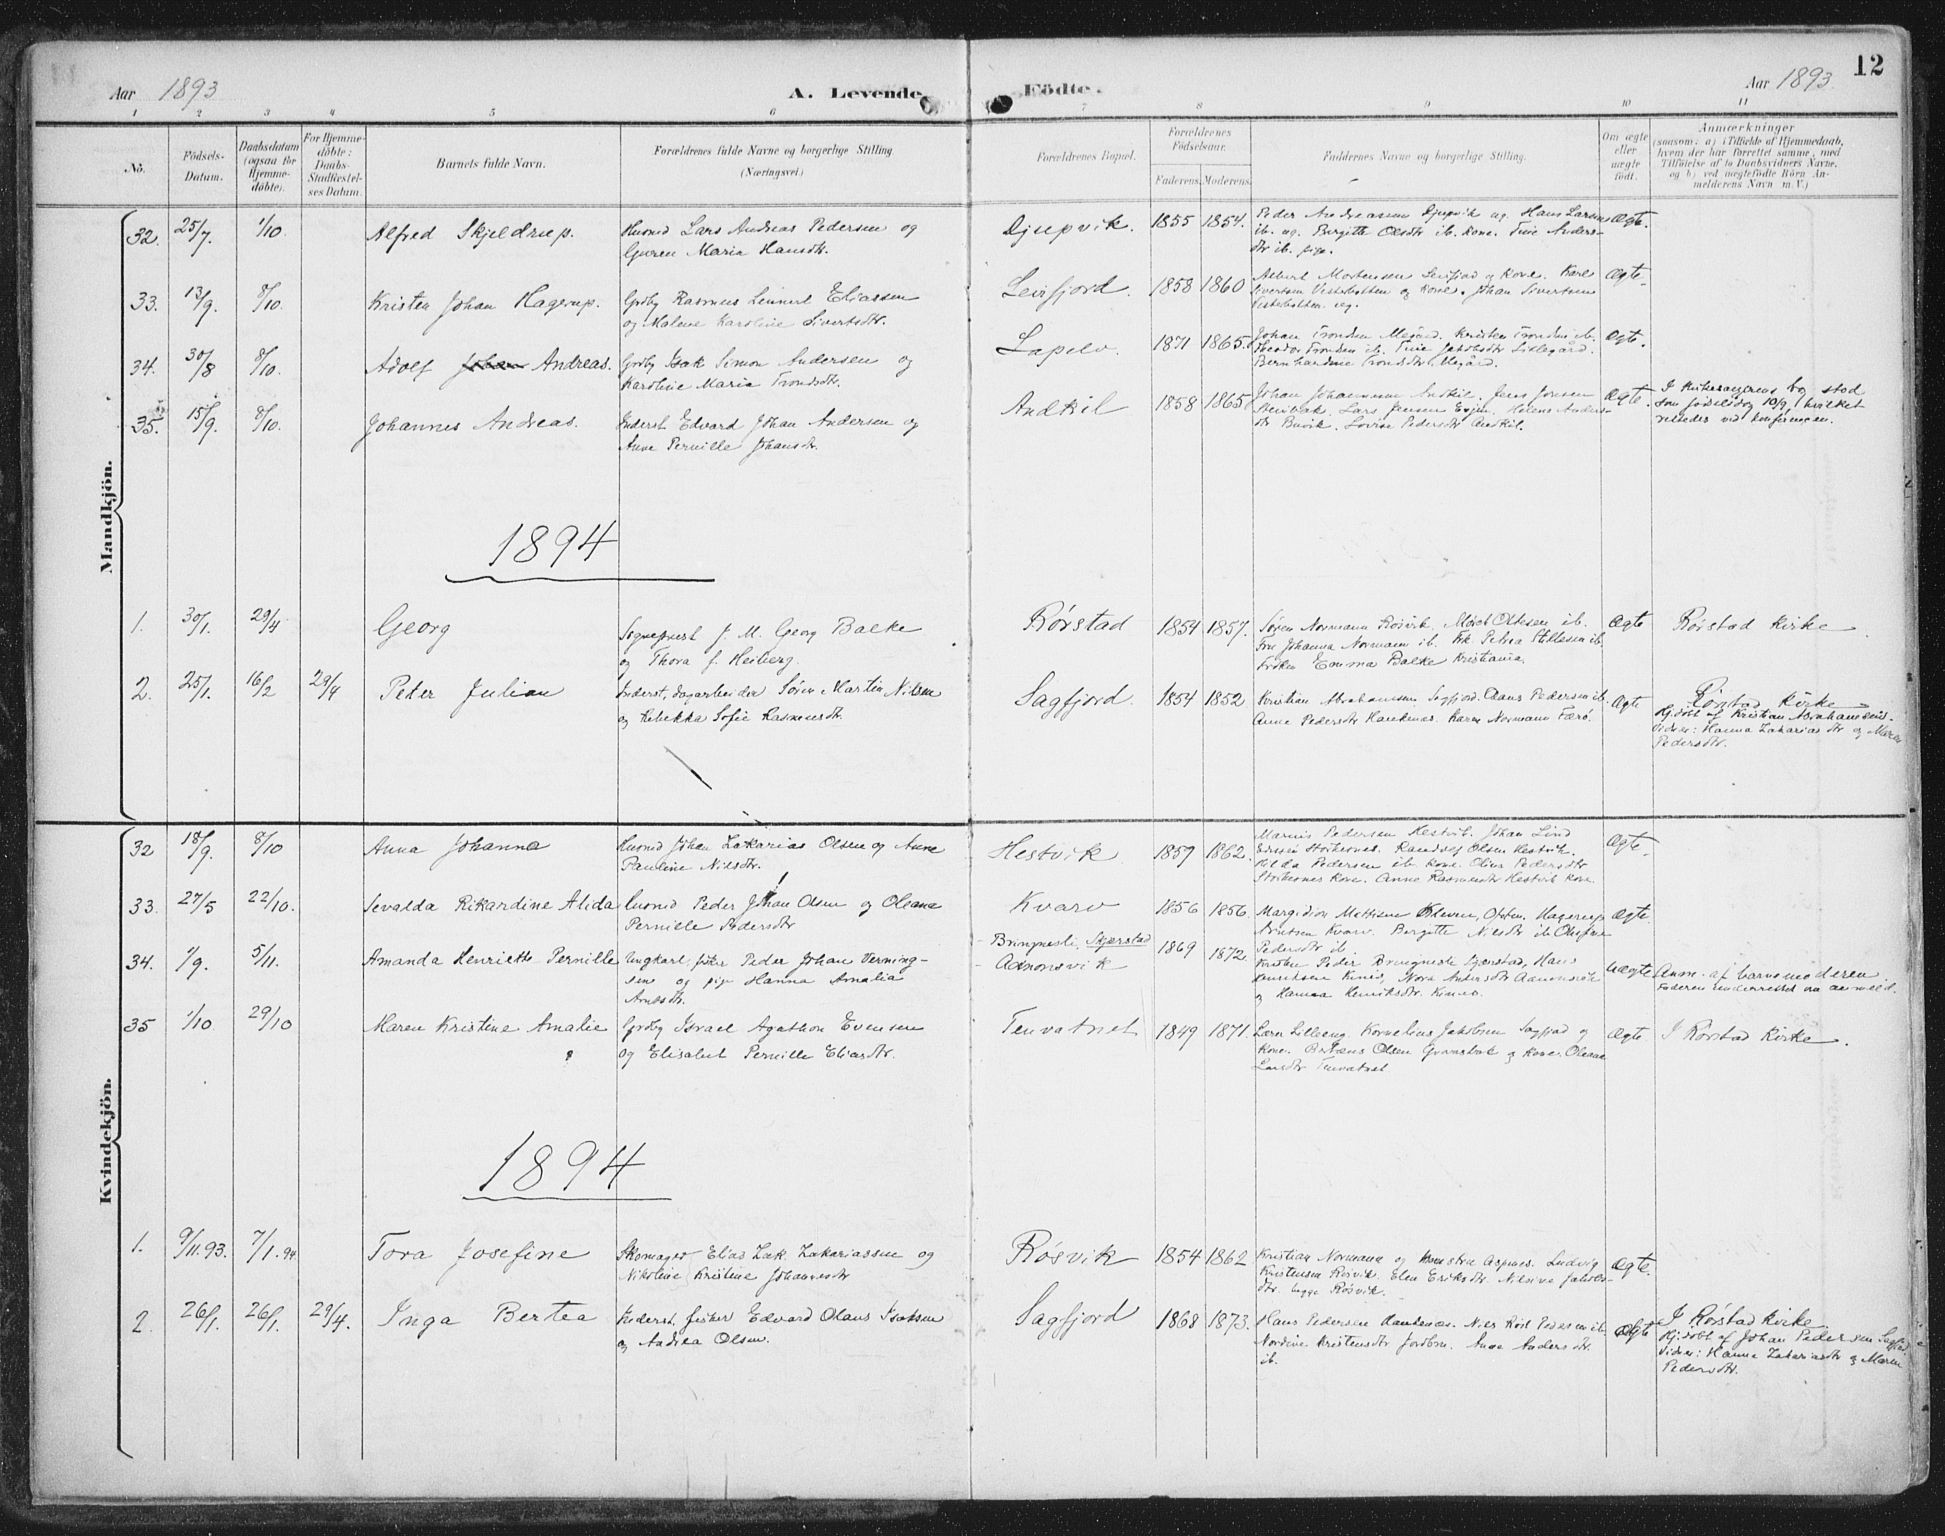 12
Aar 1893
A. Levende
Födte.
Aar 1893
1 2 3 4 5 6 7 8 9 10 11
No.
Födsels-
Datum.
Daabsdatum
(ogsaa for
Hjemme-
döbte).
For Hjemme-
döbte:
Daabs-
Stadfæstel-
ses Datum.
Barnets fulde Navn.
Forældrenes fulde Navne og borgerlige Stilling.
(Næringsvei.)
Forældrenes Bopæl.
Forældrenes
Födselsaar.
Faderens. Moderens.
Faddernes Navne og borgerlige Stilling.
Om ægte
eller
uægte
födt.
Anmærkninger
(saasom: a) i Tilfælde af Hjemmedaab,
hvem der har forrettet samme, med
Tilföielse af to Daabsvidners Navne,
og b) ved uægtefödte Börn An-
melderens Navn m. V.)
Mandkjön.
32. 25/7 1/10 Alfred Skjeldrup. Husmd Lars Andreas Pedersen og
Guren Maria Hansdtr.
Djupvik. 1855 1854. Peder Andreasen Djupvik ug. Hans Larsen
ib. ug. Birgitte Olsdtr ib. kone. Trine Anders-
dtr ib. pige.
Ægte.
33. 13/9. 8/10. Kristen Johan Hagerup. Grdbr Rasmus Lennert Eliassen
og Malene Karoline Sivertsdtr.
Leirfjord. 1858 1860 Albert Mortensen Leirfjord og Kone. Karl
Sivertsen Vestebotten og kone. Johan Sivertsen
Vestebotten ug.
Ægte
34. 30/8 8/10. Adolf Johan Andreas. Grdbr Isak Simon Andersen og
Karoline Maria Trondsdtr.
Lapelv. 1871 1865.
Ægte.
35. 15/9. 8/10. Johannes Andreas. Inderst Edvard Johan Andersen og
Anne Pernille Johansdtr.
Andkil 1858 1865 Johan Johannesen Andkil. Jens Jensen
Lars Jensen Helene Anders-
dtr Buvik. Lovise Pedersdtr Andkil.
Ægte.
I Kirkesangerens bog stod
som fødselsdag 10/9, hvilket
rettedes ved konfirmasjonen.
1894
1. 30/1. 29/4 Georg Sogneprest J. M. Georg Balke
og Thora J. Heiberg.
Rørstad 1854 1857. Søren Normann Røsvik.
Fru Johanna Normann ib. Frk. Petra Stillesen ib.
Frøken Emma Balke Kristiania.
Ægte Rørstad Kirke
2. 25/1. 16/2 29/4 Peter Julian Inderst, dagarbeider Søren Martin Nilsen
og Rebekka Sofie Rasmusdtr.
Sagfjord. 1854 1852 Kristian Abrahamsen Sagfjord. Claus Pedersen ib.
Anne Pedersdtr Haukenæs. Karen Normann Færø.
Ægte Rørstad Kirke
Hj.døbt af Kristian Abrahamsen.
Vidner: Hanna Zakariasdtr og Maren
Pedersdtr.
Kvindekjön.
32 18/9. 8/10 Anna Johanna Husmd Johan Zakarias Olsen og Anne
Pauline Nilsdtr.
Hestvik 1859 1862. Marius Pedersen Hestvik. Johan Lind
Storkernes. Randolf Olsen Hestvik.
Hilda Pedersen ib. Kone. Olina Pedersdtr
Storkernes Kone. Anne Rasmusdtr Hestvik kone.
Ægte.
33. 27/5 22/10. Sevalda Rikardine Alida Husmd Peder Johan Olsen og Oleana
Pernille Pedersdtr
Kvarv 1856 1856. Margidion Mathisen Kleven, Ofoten. Hagerup
Arntsen Kvarv. Bergitte Nilsdtr ib. Olufine
Pedersdtr ib.
Ægte
34. 1/9. 5/11. Amanda Henriette Pernille Ungkarl, fisker Peder Johan Verning-
sen og pige Hanna Amalia
Arntsdtr.
Bringnesli, Skjærstad
Aamonsvik
1869 1872. Peder Bringnesli Skjærstad, Hans
Henriksen Kines, Nora Andersdtr Aamonsvik
og Hanna Henriksdtr. Kines.
Uægte Anm. af barnemoderen.
Faderen underrettet om anmeld.
35 1/10 29/10 Maren Kristine Amalie Grdbr Israel Agathon Evensen
og Elisabet Pernille Eliasdtr.
Tenvatnet 1849 1871. Lars Lilleeng Kornelius Jakobsen Sagfjord og
Kone. Olsen og kone. Oleana
Larsdtr Tenvatnet
Ægte I Rørstad Kirke.
1894
1. 9/11.93. 7/1.94 Tora Josefine Skomager Elias Zak. Zakariassen og
Nikoline Kristine Johannesdtr
Røsvik 1854 1862 Kristian Normann og Aspenes. Ludvig
Kristensen Røsvik. Elen Eriksdtr. Nilsine Jakobs-
dtr. begge Røsvik.
Ægte.
2. 26/1. 26/1. 29/4. Inga Bertea Inderst, fisker Edvard Olaus Isaksen
og Andrea Olsen.
Sagfjord 1868 1873. Hans Pedersen Haukenæs. Pedersen ib.
Nordine Kristensdtr Anne Andersdtr
ib.
Ægte I Rørstad Kirke
Hj.døbt af Johan Pedersen Sagfjord.
Vidner: Hanna Zakariasdtr og Maren
Pedersdtr.